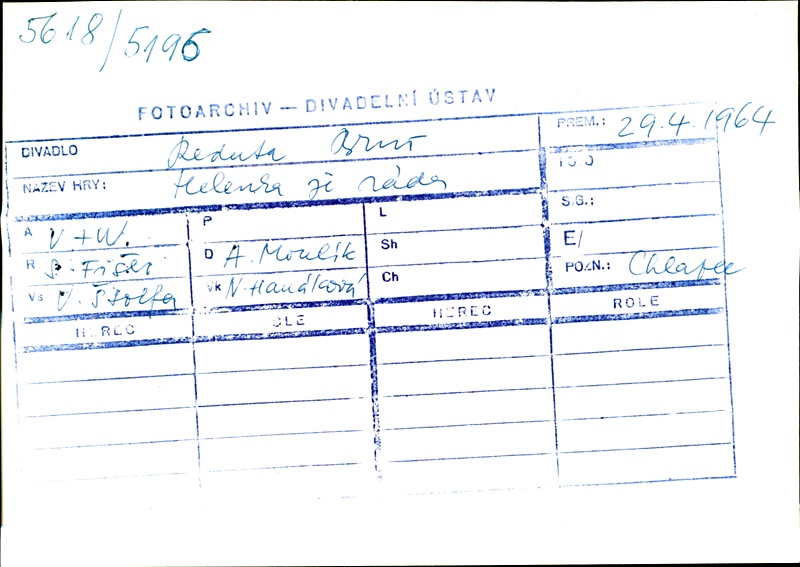 5618/5196
FOTOARCHIV — DIVADELNÍ ÚSTAV
DIVADLO Reduta Brno
PREM.: 29.4.1964
NÁZEV HRY: Helenka ji ráda
A V+W.
P
L
S.G.:
R Fišer
D A. Moulík
Sh
E/
Vs V. Štolfa
Vk N. Hanáková
Ch
POZN.: Chlapec
HEREC
HEREC
ROLE